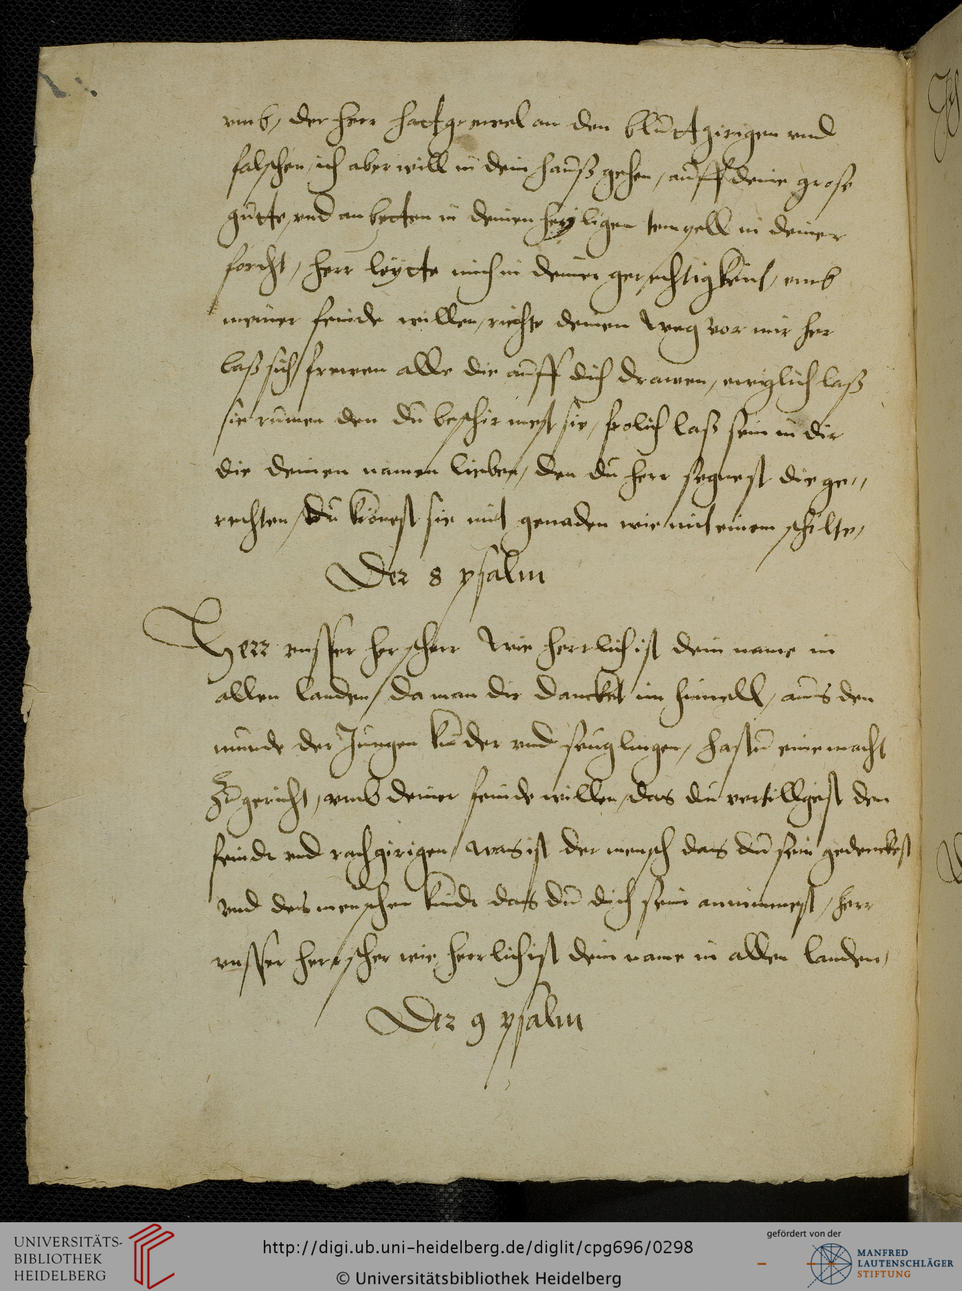 vmb, der herr hatt grewel an den blůttgirigen vnd
falschen, ich aber will in dein hauß gehen, auff deine grose
gůtte, vnd anbetten in deinen heyligen tempell in deiner
forcht, herr leytte mich in deiner gerechtigkeit, vmb
meiner feinde willen, richte deinen weg vor mir her
laß sich frewen alle die auff dich drawen, ewiglich laß
sie rumen den du beschirmest sie, frolich laß sein in dir
die deinen namen lieben, den du herr segnest die ge„
rechten, du kronest sie mit genaden wie mit einem schilte,
Der 8 psalm
Herr vnsser herscherr wie herrlich ist dein name in
allen landen, da man dir dancket im himell, auss den
munde der Jungen kinder vnd seuglingen, hastu eine macht
zugericht, vmb deiner feinde willen, das du vertillgest den
feindt vnd rachgirigen, was ist der mensch das du sein gedenckest
vnd des menschen kindt das du dich sein annimmest, herr
vnsser herscher wie herrlich ist dein name in allen landen,
Der 9 psalm
UNIVERSITÄTS-
BIBLIOTHEK
HEIDELBERG
http://digi.ub.uni-heidelberg.de/diglit/cpg696/0298
© Universitätsbibliothek Heidelberg
gefördert von der
MANFRED
LAUTENSCHLÄGER
STIFTUNG